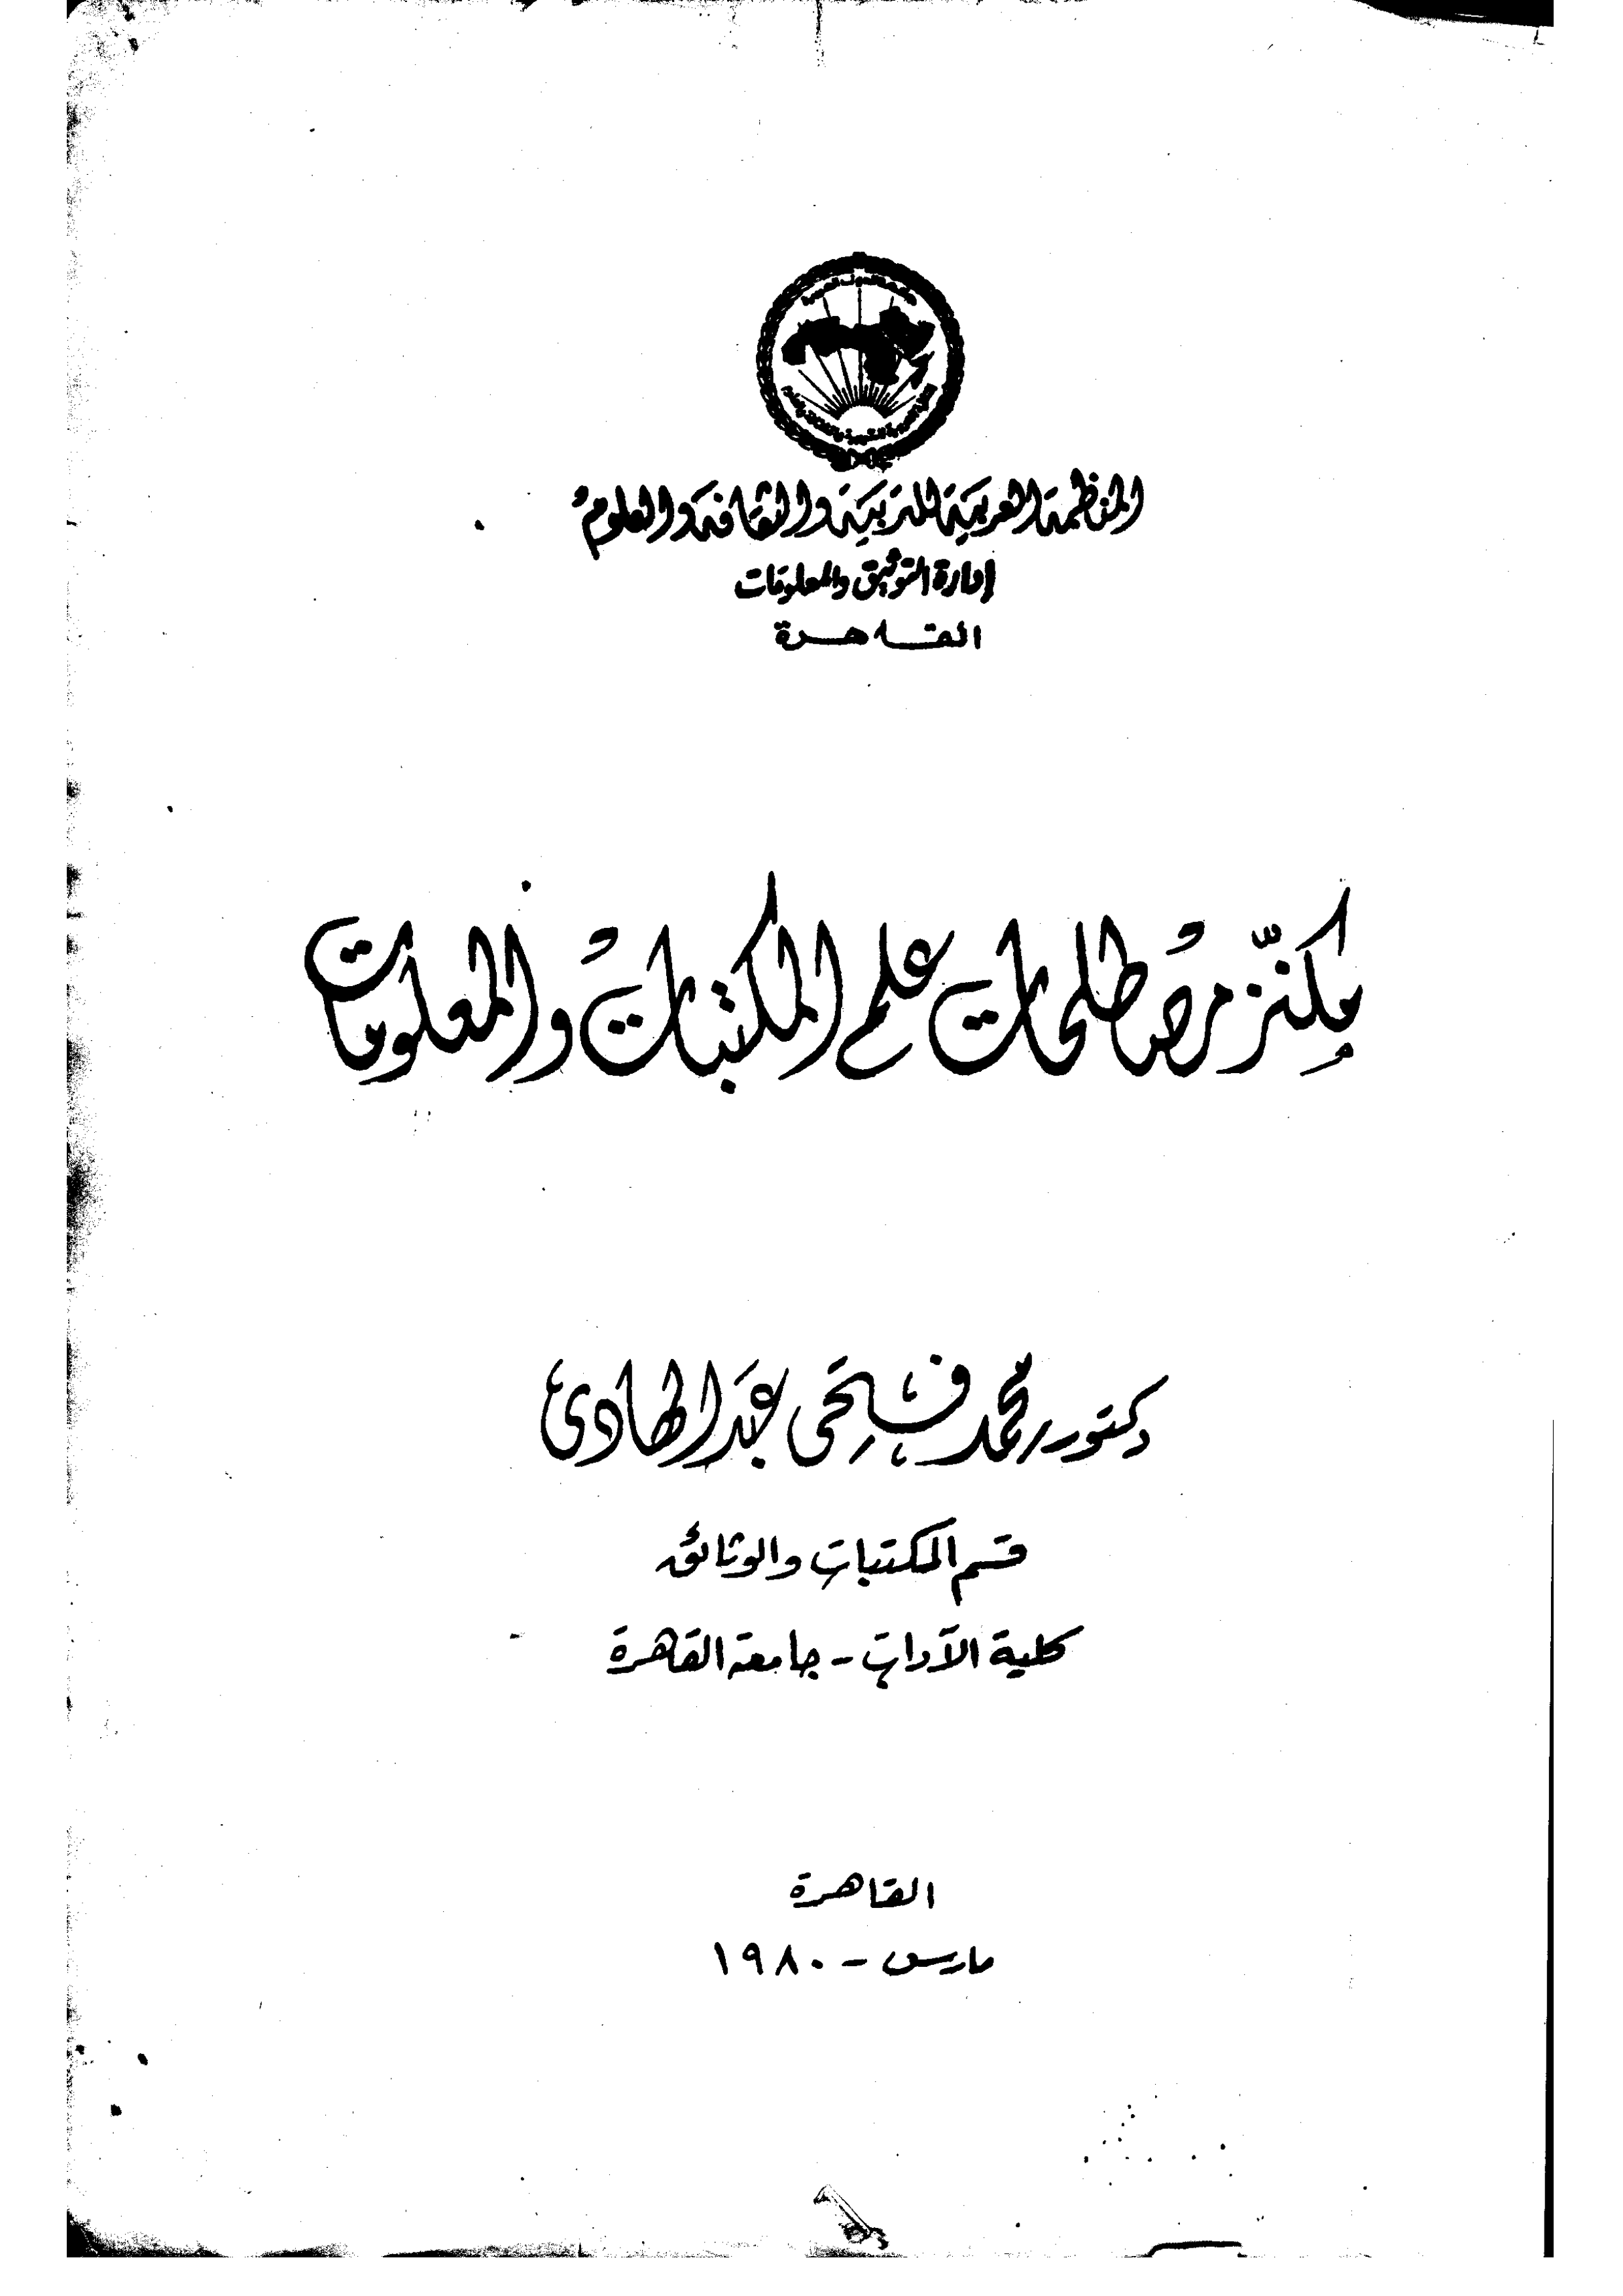 المنظمة العربية للتربية والثقافة والعلوم
إدارة التوثيق والمعلومات
القاهرة
مكنز مصطلحات علم المكتبات والمعلومات
دكتور محمد فتحى عبد الهادى
قسم المكتبات والوثائق
كلية الآداب - جامعة القاهرة
القاهرة
مارس - ١٩٨٠